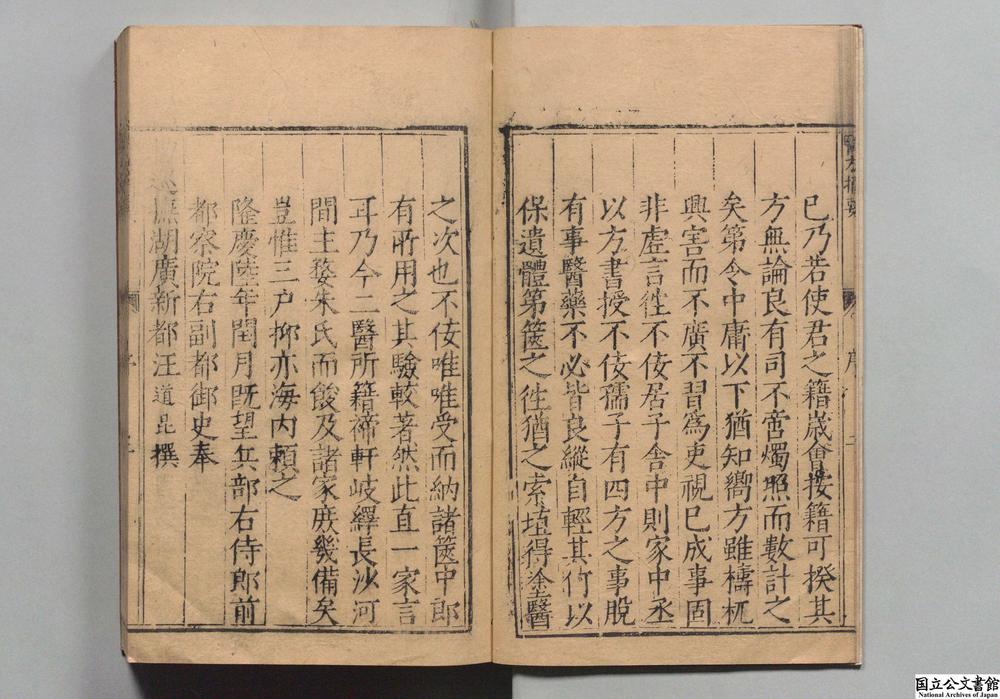 已乃若使君之籍嵗會按籍可揆其
方無論良有司不啻燭照而數計之
矣第令中庸以下猶知嚮方雖檮杌
興害而不廣不習爲吏視已成事固
非虛言徃不佞居子舍中則家中丞
以方書授不佞孺子有四方之事脫
有事醫藥不必皆良縱自輕其何以
保遺體第篋之徃猶之索塗得塗醫
之次也不佞唯唯受而納諸篋中郎
有所用之其驗較著然此直一家言
耳乃今二醫所籍禘軒岐繹長沙河
間主婺朱氏而餕及諸家庶幾備矣
豈惟三户抑亦海内頼之
隆慶陸年閏月既望兵部右侍郎前
都察院右副都御史奉
巡撫湖廣新都汪道昆撰
序
国立公文書館
National Archives of Japan